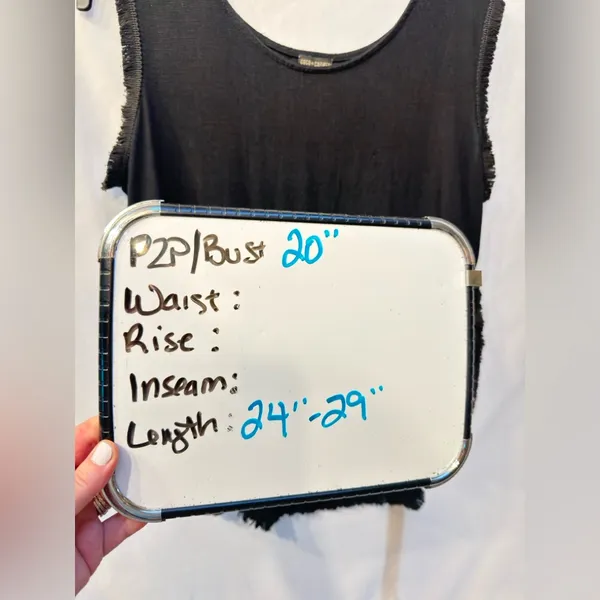 P2P/Bust 20"
Waist:
Rise:
Inseam:
Length: 24"-29"